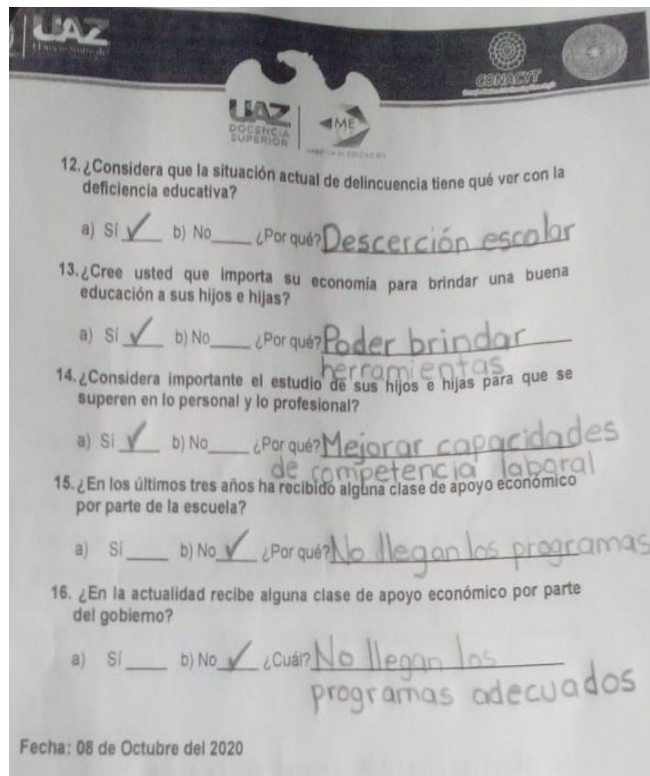 UAZ
CONACYT
UAZ
DOCENCIA
SUPERIOR
ME
12. ¿Considera que la situación actual de delincuencia tiene qué ver con la
deficiencia educativa?
a) Sí ✓ b) No____ ¿Por qué? Descerción escolar
13. ¿Cree usted que importa su economía para brindar una buena
educación a sus hijos e hijas?
a) Sí ✓ b) No____ ¿Por qué? Poder brindar
herramientas
14. ¿Considera importante el estudio de sus hijos e hijas para que se
superen en lo personal y lo profesional?
a) Sí ✓ b) No____ ¿Por qué? Mejorar capacidades
de competencia laboral
15. ¿En los últimos tres años ha recibido alguna clase de apoyo económico
por parte de la escuela?
a) Sí____ b) No ✓ ¿Por qué? No llegan los programas
16. ¿En la actualidad recibe alguna clase de apoyo económico por parte
del gobierno?
a) Sí____ b) No ✓ ¿Cuál? No llegan los
programas adecuados
Fecha: 08 de Octubre del 2020